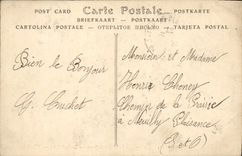 POST CARD Carte Postale POSTKARTE
BRIEFKAART - POSTKAART
CARTOLINA POSTALE - ОТКРЫТОЕ ПИСЬМО - TARJETA POSTAL
Bien le Bonjour
G. Cuchet
Monsieur et Madame
Henri
Chemin de la
à Neuilly Plaisance
(S et O)